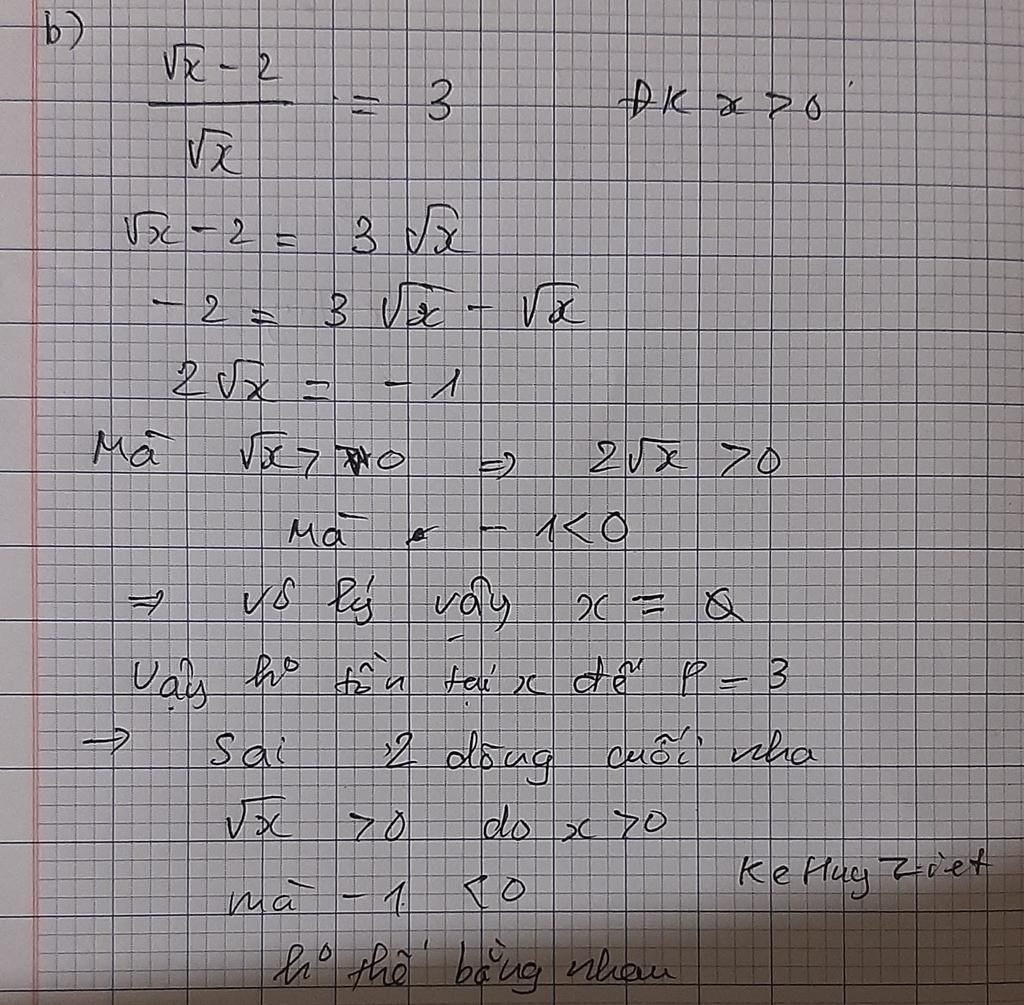 b)
√x - 2 / √x = 3 ĐK x > 0
√x - 2 = 3 √x
- 2 = 3 √x - √x
2 √x = - 1
Mà √x > 0 ⇒ 2√x > 0
Mà - 1 < 0
⇒ vô lý vậy x = Ø
Vậy ko tồn tại x để P = 3
→ Sai 2 dòng cuối nha
√x > 0 do x > 0
mà - 1 < 0
ko thể bằng nhau